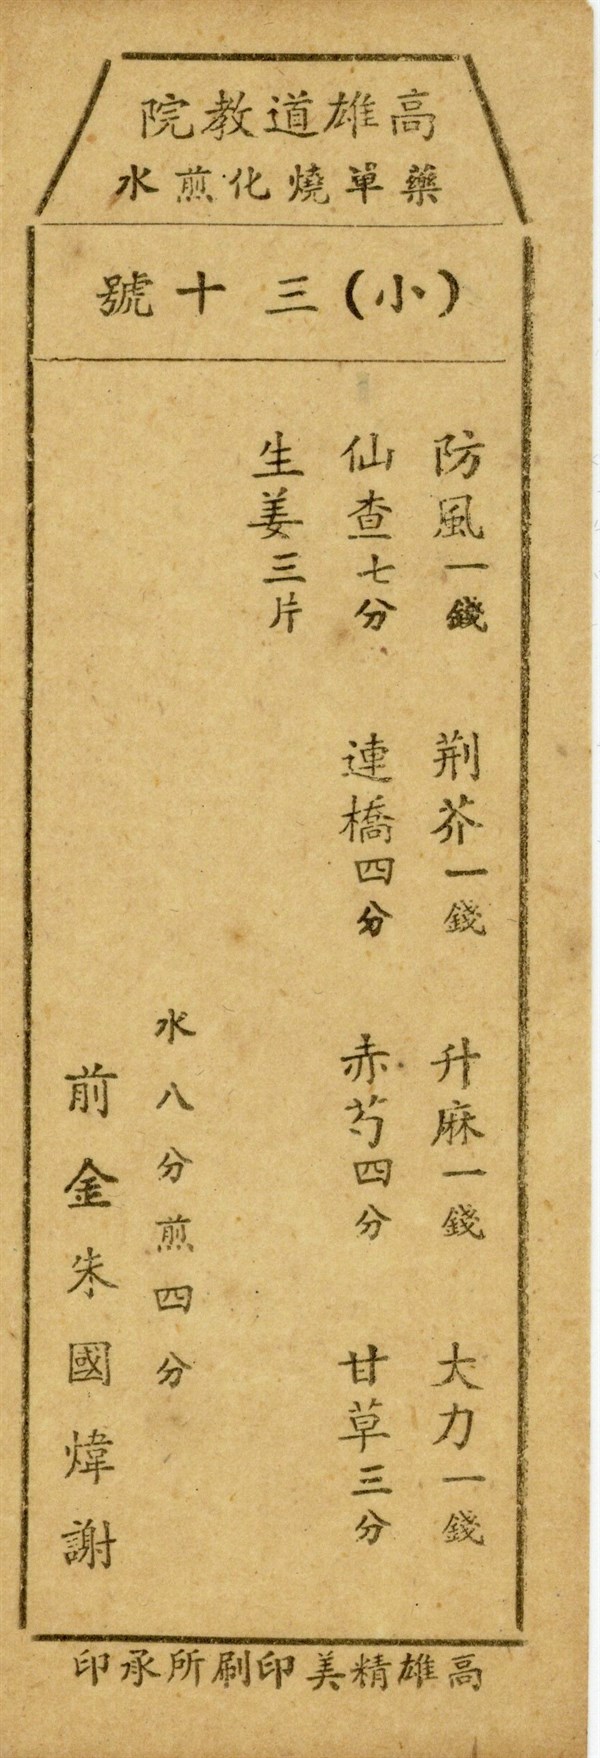 高雄道教院
藥單燒化煎水
(小)三十號
防風一錢 荆芥一錢 升麻一錢 大力一錢
仙查七分 連橋四分 赤芍四分 甘草三分
生姜三片
水八分煎四分
前金朱國煒謝
高雄精美印刷所承印